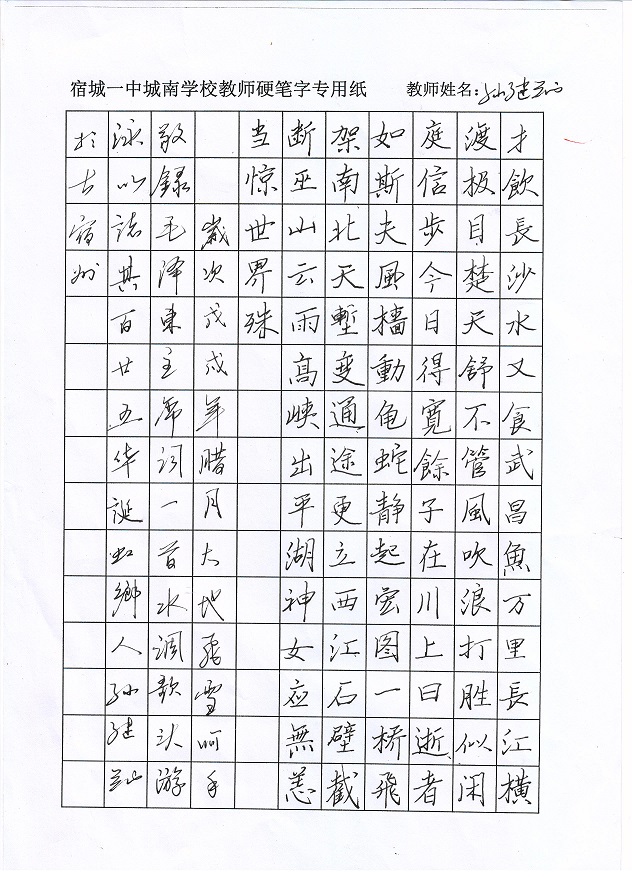 宿城一中城南学校教师硬笔字专用纸 教师姓名：孙建
才飲長沙水又食武昌魚万里長江橫
渡极目楚天舒不管風吹浪打胜似闲
庭信步今日得寬餘子在川上曰逝者
如斯夫風檣動龟蛇静起宏图一桥飛
架南北天塹变通途更立西江石壁截
断巫山云雨高峡出平湖神女应無恙
当惊世界殊
歲次戊戌年腊月大地飛雪呵手
敬録毛泽東主席词一首水调歌头游
泳以誌其百廿五华诞虹鄉人孙建
扵古宿州